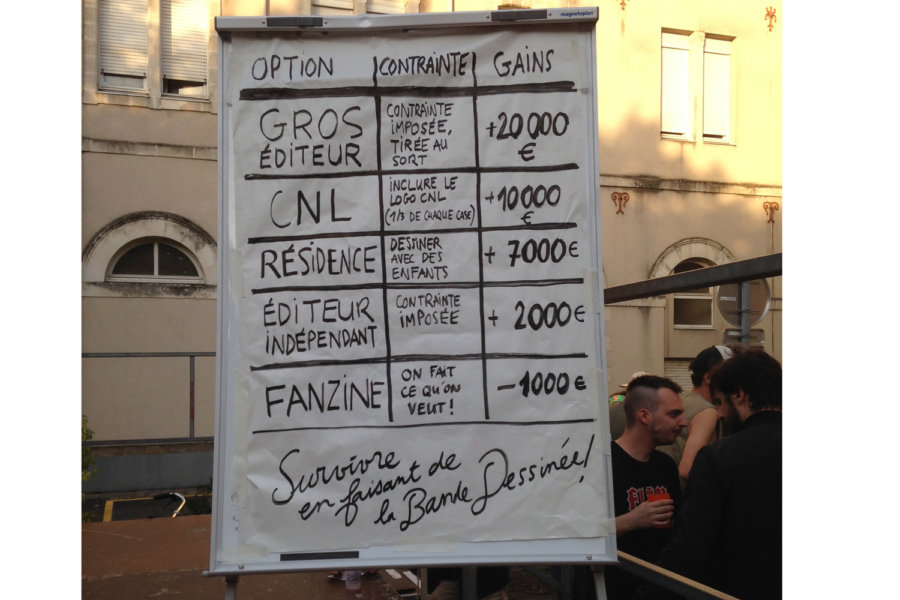 magnetoplan
OPTION CONTRAINTE GAINS
GROS
ÉDITEUR
CONTRAINTE
IMPOSÉE,
TIRÉE AU
SORT
+20000
€
CNL
INCLURE LE
LOGO CNL
(1/3 DE CHAQUE CASE)
+10000
€
RÉSIDENCE
DESSINER
AVEC DES
ENFANTS
+ 7000€
ÉDITEUR
INDÉPENDANT
CONTRAINTE
IMPOSÉE
+ 2000€
FANZINE
ON FAIT
CE QU'ON
VEUT!
-1000€
Survivre
en faisant de
la Bande Dessinée!